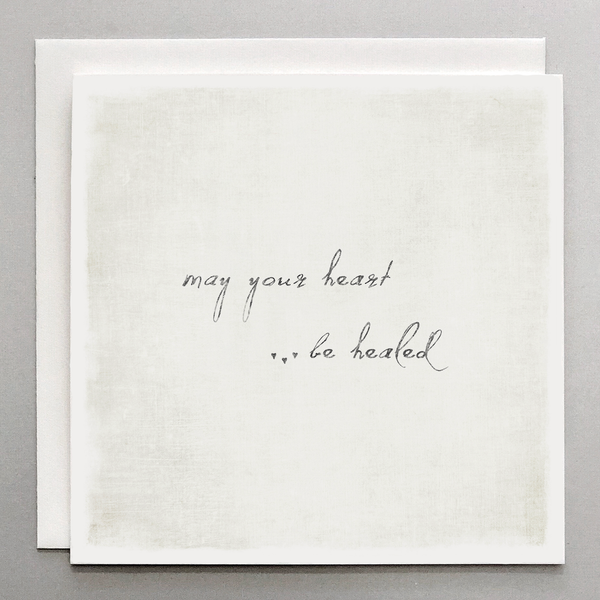 may your heart
... be healed